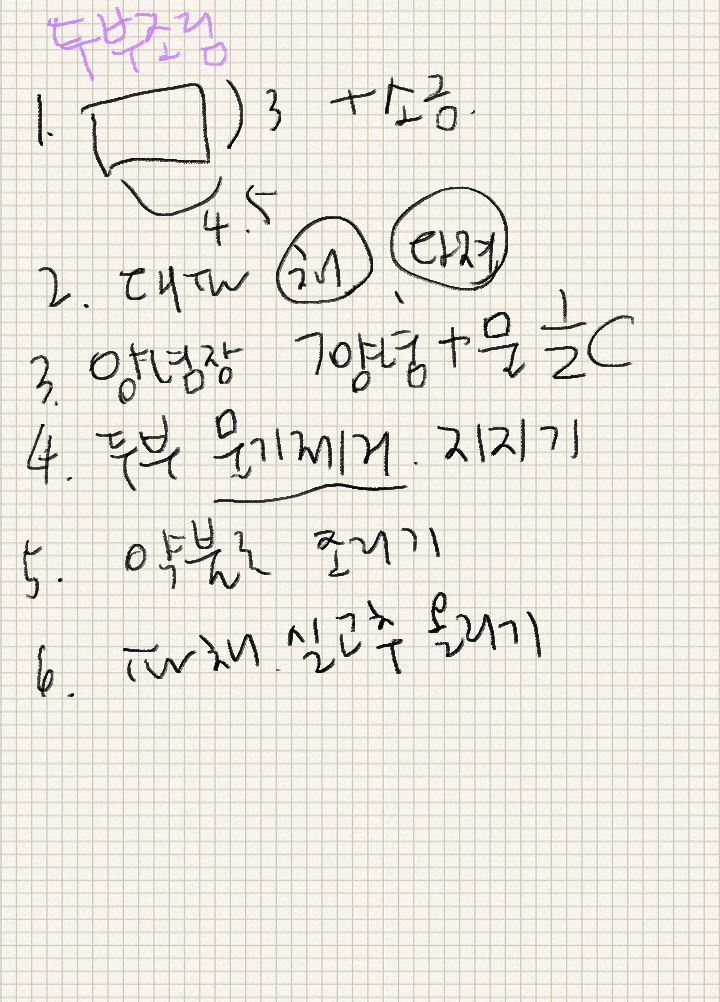 두부조림
1. 3 +소금.
4.5
2. 대파 채 다져
3. 양념장 7양념+물 1/2C
4. 두부 물기제거. 지지기
5. 약불로 조리기
6. 파채. 실고추 올리기